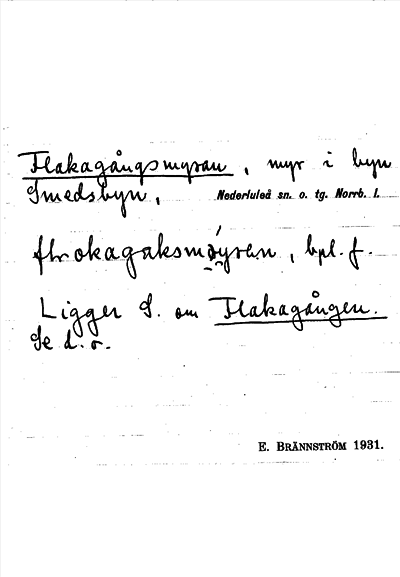 Flakagångsmyran, myr i byn
Smedsbyn, Nederluleå sn. o. tg. Norrb. l.
flrokagaksmöyran, bpl. f.
Ligger S. om Flakagången.
Se d. o.
E. BRÄNNSTRÖM 1931.